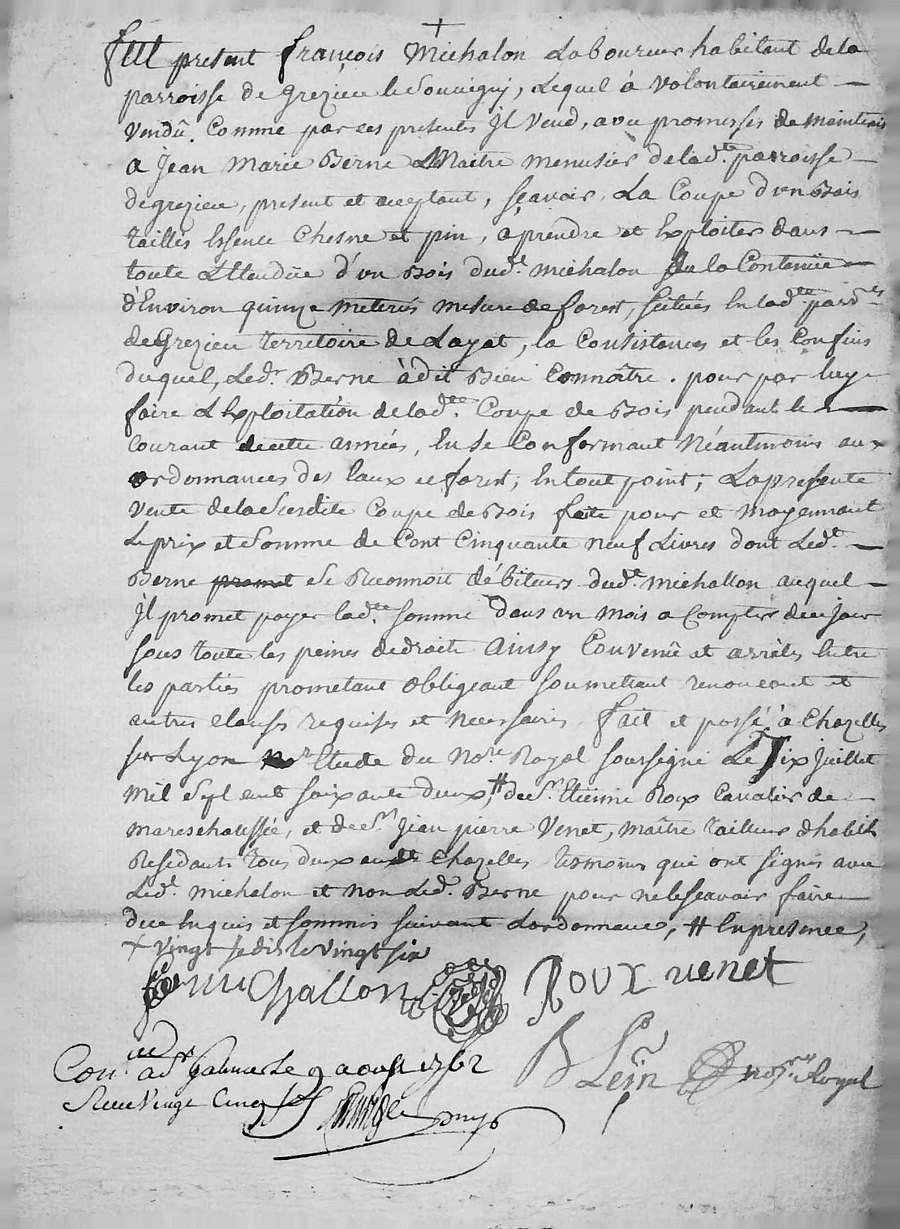 +
Fut present François Michalon Laboureur habitant de la
parroisse de Grezieu le Souvigny, Lequel à volontairement
vendû comme par ces presentes Jl vend, avec promesses de maintenir
a Jean Marie Berne Maitre menusier de lad.te parroisse
de grezieu, present et aceptant, sçavoir, La Coupe d'un Bois
taillés Essence Chesne et pin, a prendre et Exploiter dans
toute L'Etendüe d'un Bois dud.t michalon de la Contenüe
d'Environ quinze meterés mesure de forest, scituées En lad.te parr.se
de Grezieu territoire de Layat, la Consistances et les Confins
duquel, Led.t Berne à dit Bien Connoître. pour par luy
faire L'Exploitation de lad.te Coupe de Bois pendant le
courant de cette année, En se Conformant Néantmoins aux
ordonnances des Eaux et forest, En tout point; La presente
vente de la Susdite Coupe de Bois faite pour et moyennant
Le prix et Somme de Cent Cinquante neuf Livres dont Led.t
Berne promet Se Reconnoit débiteur dud.t michallon auquel
Jl promet payer lad.te somme dans un mois a Compter de ce jour
sous toute les peines de droits Ainsy Convenû et arrêtés Entre
les parties prometant obligeant soumettant renonceant et
autres clauses requises et necessaires. fait et passé à Chazelles
sur Lyon Etude du No.re Royal soussigné Le Six Juillet
mil Sept cent soixante deux, # de S.r Etienne Roux Cavalier de
mareschaussée, et de S.r Jean pierre Venet, maître tailleur d'habit
Residants tous deux aud.t Chazelles temoins qui ont signés avec
Led.t michalon et non Led.t Berne pour ne le sçavoir faire
de ce Enquis et sommis suivant Lordonnance, # En presence,
+ vingt se dis le vingt six
michallon ROUX venet
Con.lé à S.t Galmier Le 9 aoust 1762 B Lein no.re Royal
Receu vingt Cinq sols